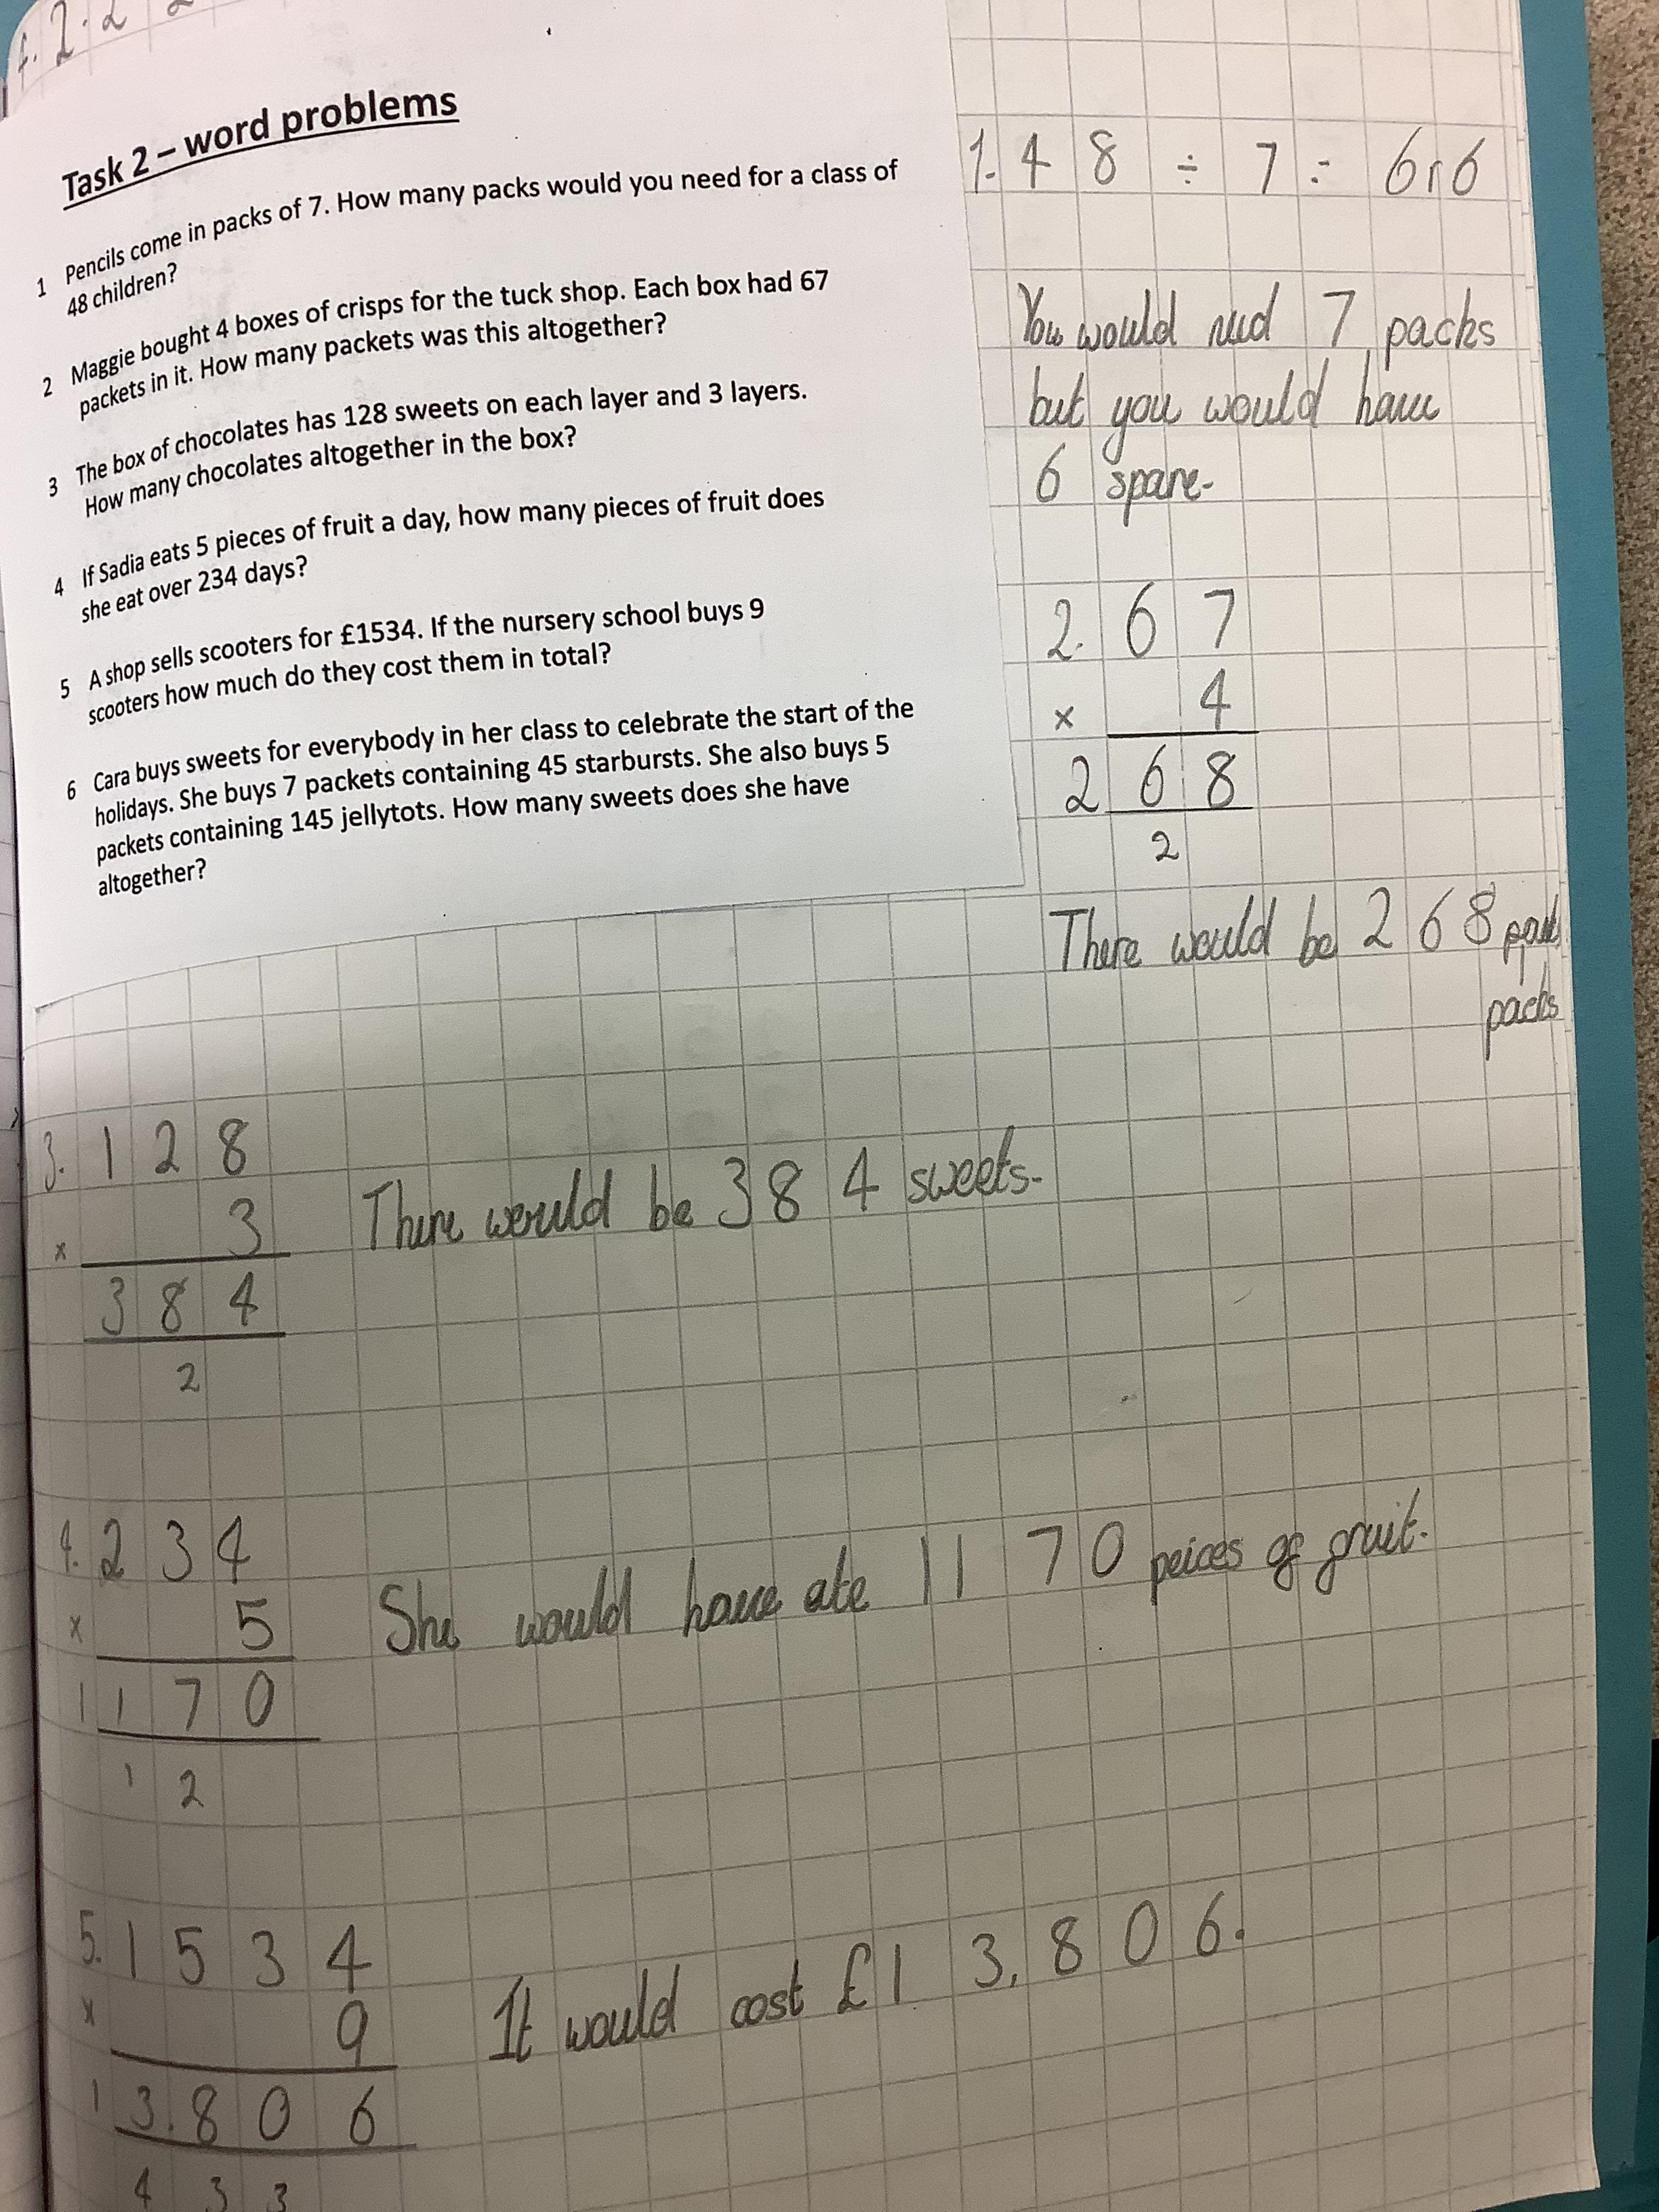 f. 2.2 2
Task 2 – word problems
1 Pencils come in packs of 7. How many packs would you need for a class of
48 children?
2 Maggie bought 4 boxes of crisps for the tuck shop. Each box had 67
packets in it. How many packets was this altogether?
3 The box of chocolates has 128 sweets on each layer and 3 layers.
How many chocolates altogether in the box?
4 If Sadia eats 5 pieces of fruit a day, how many pieces of fruit does
she eat over 234 days?
5 A shop sells scooters for £1534. If the nursery school buys 9
scooters how much do they cost them in total?
6 Cara buys sweets for everybody in her class to celebrate the start of the
holidays. She buys 7 packets containing 45 starbursts. She also buys 5
packets containing 145 jellytots. How many sweets does she have
altogether?
1. 48 ÷ 7 = 6r6
You would need 7 packs
but you would have
6 spare.
2. 67
× 4
268
2
There would be 268
packs
3. 128
× 3
384
2
There would be 384 sweets.
4. 234
× 5
1170
1 2
She would have ate 1170 peices of fruit.
5. 1534
× 9
13.806
4 3 3
It would cost £13,806.